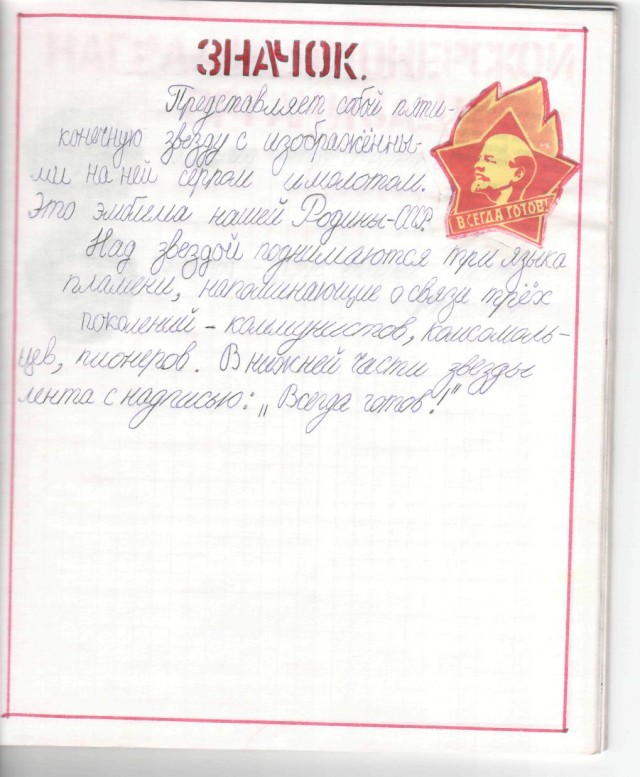 ЗНАЧОК.
Представляет собой пяти-
конечную звезду с изображённы-
ми на ней серпом и молотом.
Это эмблима нашей Родины-СССР.
Над звездой поднимаются три языка
пламени, напоминающие о связи трёх
поколений - коммунистов, комсомоль-
цев, пионеров. В нижней части звезды
лента с надписью: „Всегда готов!"
ВСЕГДА ГОТОВ!